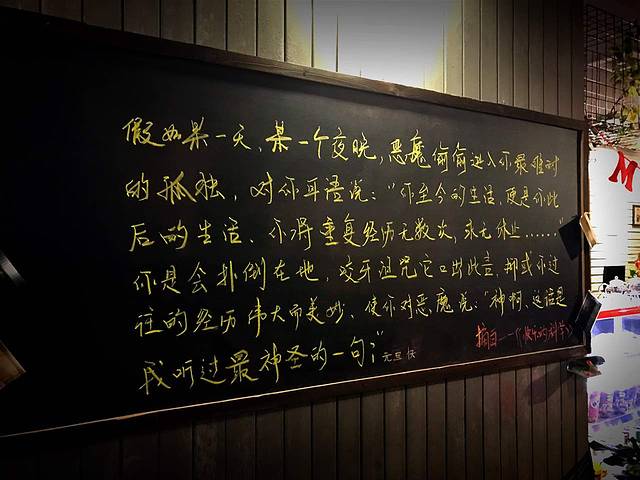 假如某一天、某一个夜晚,恶魔偷偷进入你最难耐
的孤独,对你耳语说:"你至今的生活,便是你此
后的生活、你将重复经历无数次,永无休止……"
你是会扑倒在地,咬牙诅咒它口出此言,那或你过
往的经历伟大而美妙、使你对恶魔说:"神啊、这话是
我听过最神圣的一句!"
摘自——《快乐的科学》
M